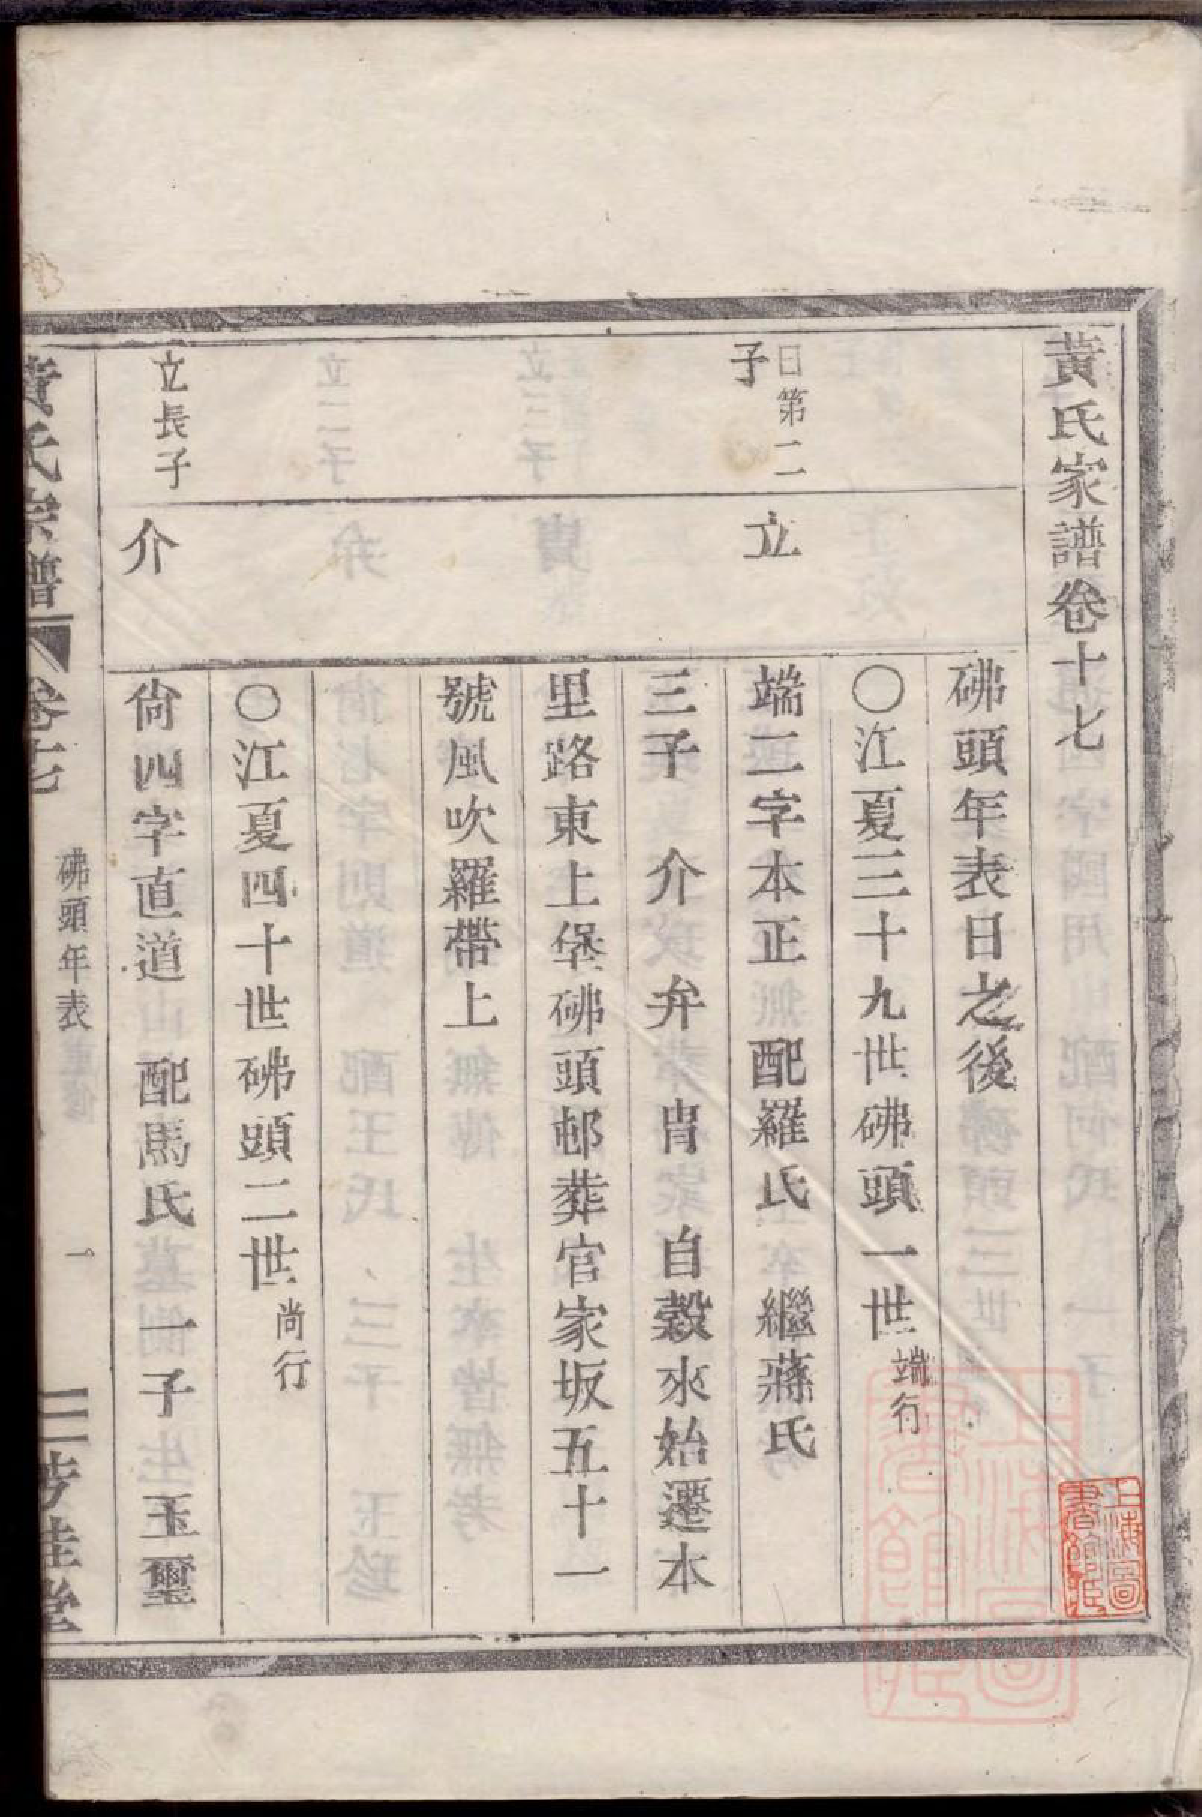 黃氏家譜卷十七
砩頭年表日之後
〇江夏三十九世砩頭一世端行
日第二子
立
端二字本正 配羅氏 繼蔣氏
三子 介 弁 胄 自穀來始遷本
里路東上堡砩頭邨葬官家坂五十一
號風吹羅帶上
〇江夏四十世砩頭二世尚行
立長子
介
尙四字直道 配馬氏 一子 玉璽
黃氏宗譜 卷十七 砩頭年表 一 芳桂堂
上海圖書館藏